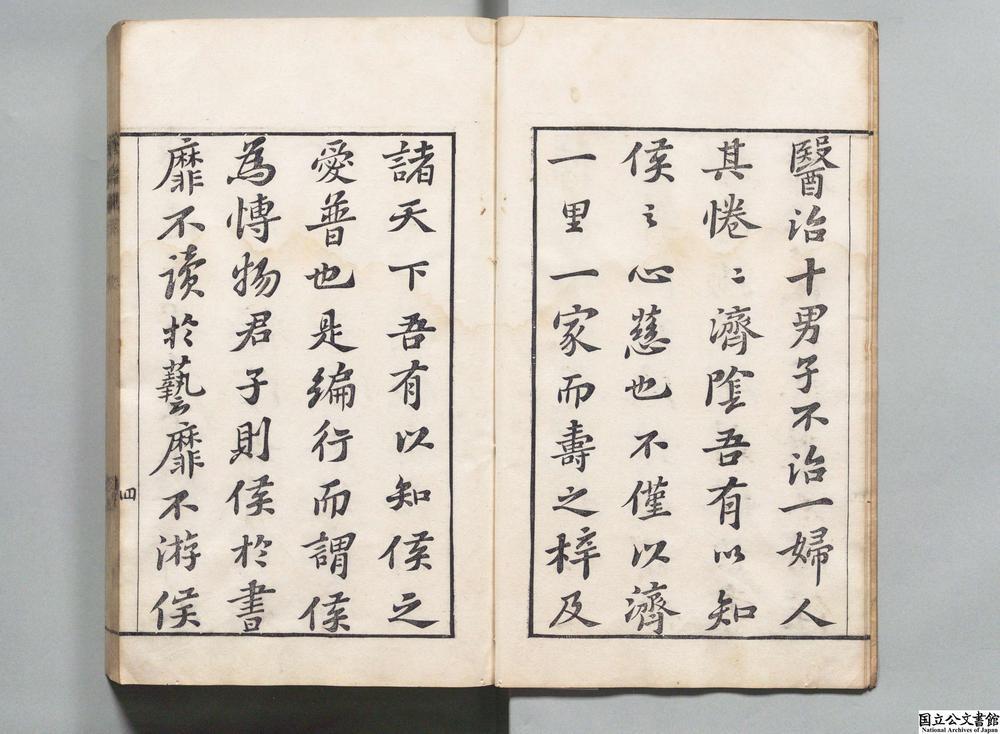 醫治十男子不治一婦人
其惓〻濟陰吾有以知
侯之心慈也不僅以濟
一里一家而壽之梓及
諸天下吾有以知侯之
愛普也是編行而謂侯
為博物君子則侯於書
靡不读於藝靡不游侯
四
国立公文書館
National Archives of Japan